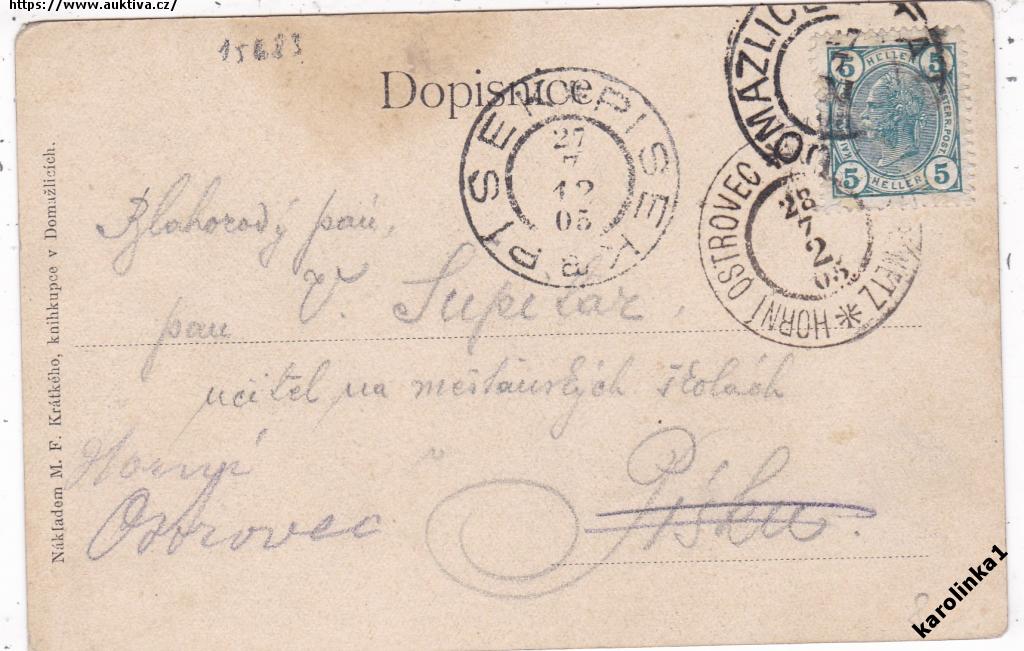 https://www.auktiva.cz/
15683
Dopisnice
PISEK * PISEK
27
7
12
05
a
DOMAŽLICE
27
7
HORNÍ OSTROVEC *
METZ *
28
7
2
05
5 HELLER 5
5 HELLER 5
Blahorodý pan,
pan V. Supeřar,
učitel na mešťanských školách
Písku
Horní
Ostrovec
Nákladem M. F. Krátkého, knihkupce v Domažlicích.
karolinka1